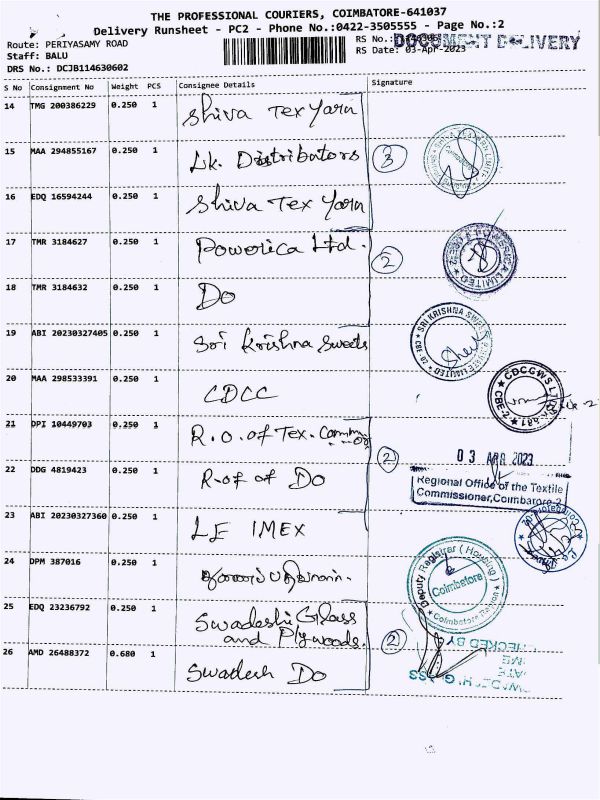 THE PROFESSIONAL COURIERS, COIMBATORE-641037
Delivery Runsheet - PC2 - Phone No.:0422-3505555 - Page No.:2
Route: PERIYASAMY ROAD
Staff: BALU
DRS No.: DCJB114630602
RS No.:
RS Date: 03-Apr-2023
DOCUMENT DELIVERY
S No Consignment No Weight PCS Consignee Details Signature
14 TMG 200386229 0.250 1 Shiva Tex Yarn
15 MAA 294855167 0.250 1 Lk. Distributors
3
16 EDQ 16594244 0.250 1 Shiva Tex Yarn
17 TMR 3184627 0.250 1 Powerica Ltd.
2
18 TMR 3184632 0.250 1 Do
19 ABI 20230327405 0.250 1 Sri Krishna Sweets
SRI KRISHNA SWEETS PRIVATE LIMITED CBE-
20 MAA 298533391 0.250 1 CDCC
CDCGWS
CBE-2
21 DPI 10449703 0.250 1 R.O. of Tex.
2
03 APR 2023
22 DDG 4819423 0.250 1 R.of of Do
Regional Office of the Textile
Commissioner, Coimbatore-2
23 ABI 20230327360 0.250 1 LE IMEX
24 DPM 387016 0.250 1
Deputy Registrar (Housing)
Coimbatore
Coimbatore Region
25 EDQ 23236792 0.250 1 Swadeshi Glass
and Plywoods
2
CHECKED BY
26 AMD 26488372 0.680 1 Swadesh Do